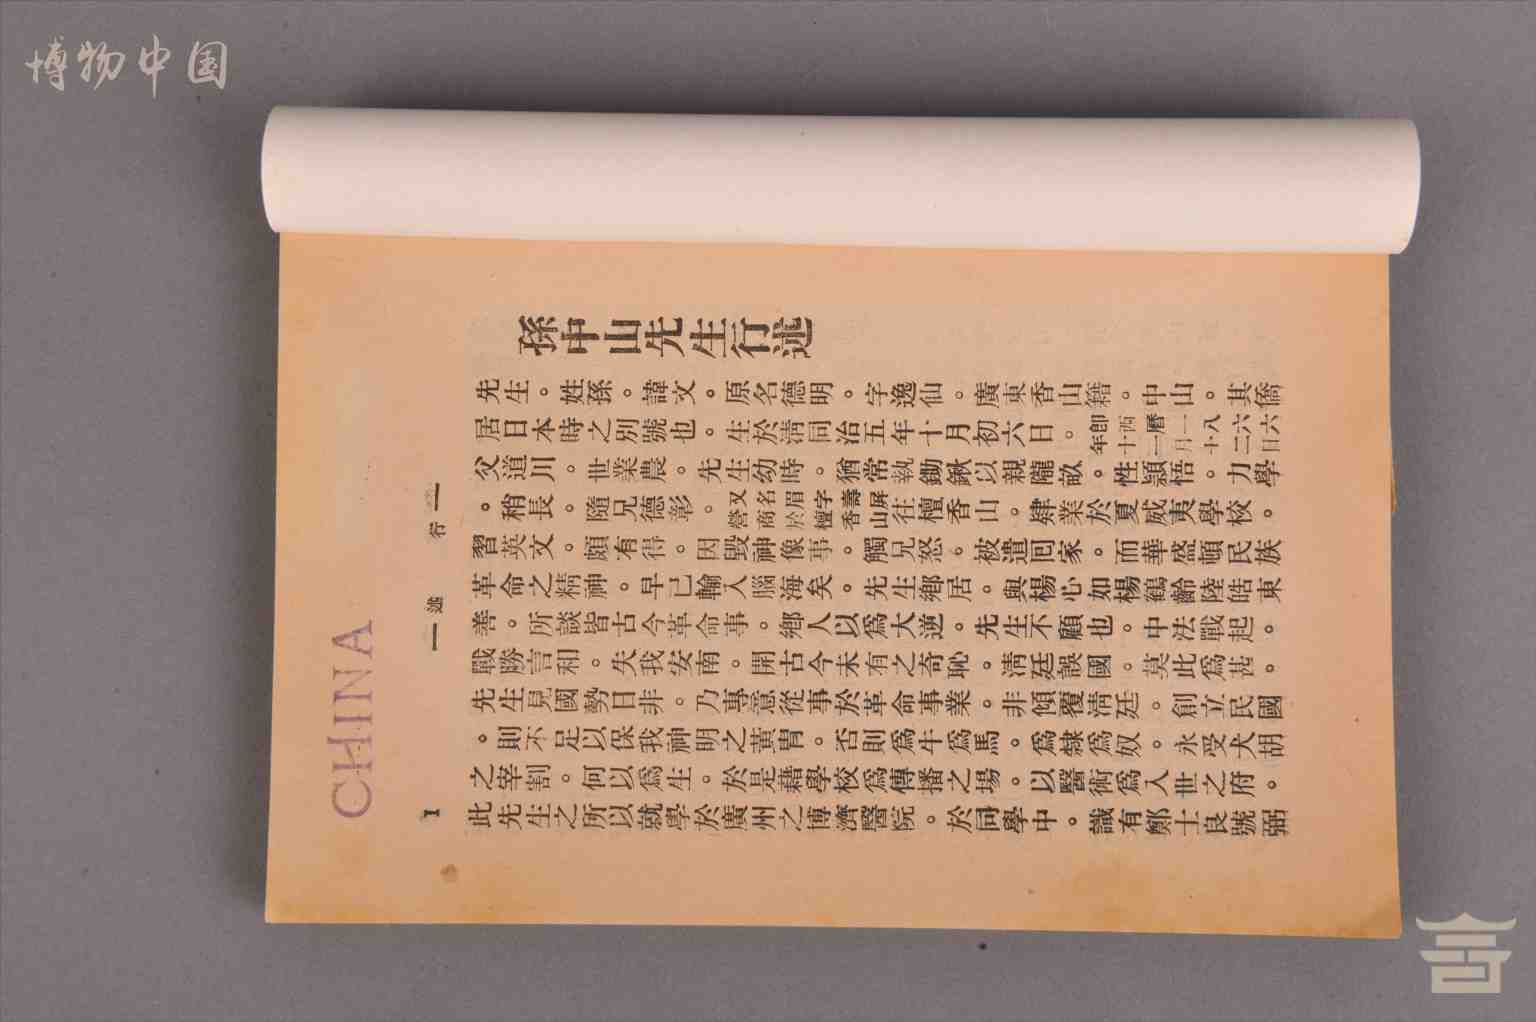 博物中国
孫中山先生行述
先生。姓孫。諱文。原名德明。字逸仙。廣東香山籍。中山。其僑
居日本時之別號也。生於淸同治五年十月初六日。卽西曆一八六六年十一月十二日
父道川。世業農。先生幼時。猶常執鋤鍬以親隴畝。性穎悟。力學
。稍長。隨兄德彰。又名眉字壽屏營商於檀香山往檀香山。肄業於夏威夷學校。
習英文。頗有得。因毀神像事。觸兄怒。被遣回家。而華盛頓民族
革命之精神。早已輸入腦海矣。先生鄕居。與楊心如楊鶴齡陸皓東
善。所談皆古今革命事。鄕人以爲大逆。先生不顧也。中法戰起。
戰勝言和。失我安南。開古今未有之奇恥。淸廷誤國。莫此爲甚。
先生見國勢日非。乃專意從事於革命事業。非傾覆淸廷。創立民國
。則不足以保我神明之黃冑。否則爲牛爲馬。爲隸爲奴。永受犬胡
之宰割。何以爲生。於是藉學校爲傳播之場。以醫術爲入世之府。
此先生之所以就學於廣州之博濟醫院。於同學中。識有鄭士良號弼
行述
1
CHINA